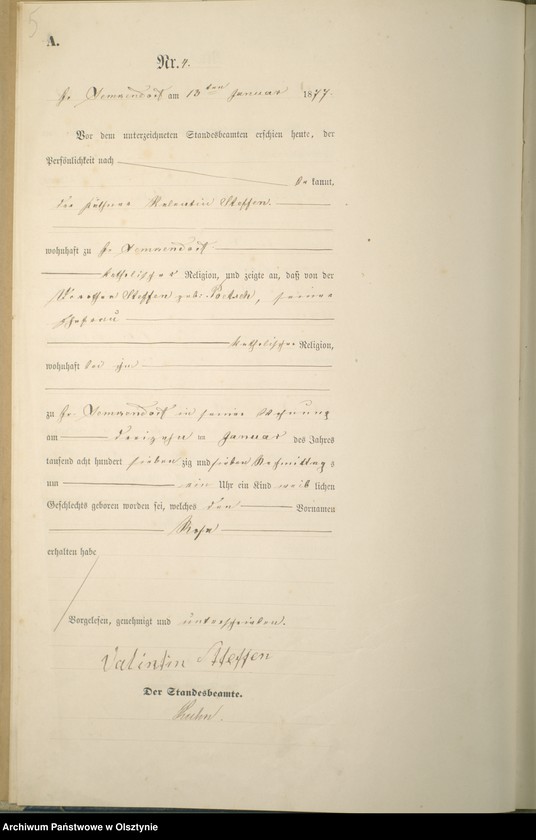 5
A.
Nr. 4.
am 13ten Januar 1877.
Vor dem unterzeichneten Standesbeamten erschien heute, der
Persönlichkeit nach
be kannt,
der Käthner Valentin Steffen
wohnhaft zu Gr.
katholischer Religion, und zeigte an, daß von der
Dorothea Steffen geb: Poetsch, seiner
Ehefrau
katholischer Religion,
wohnhaft bei ihm
zu Gr. in seiner Wohnung
am dreizehn ten Januar des Jahres
tausend acht hundert sieben zig und sieben Nachmittag s
um ein Uhr ein Kind weib lichen
Geschlechts geboren worden sei, welches den Vornamen
Rosa
erhalten habe
Vorgelesen, genehmigt und unterschrieben.
Valentin Steffen
Der Standesbeamte.
Archiwum Państwowe w Olsztynie